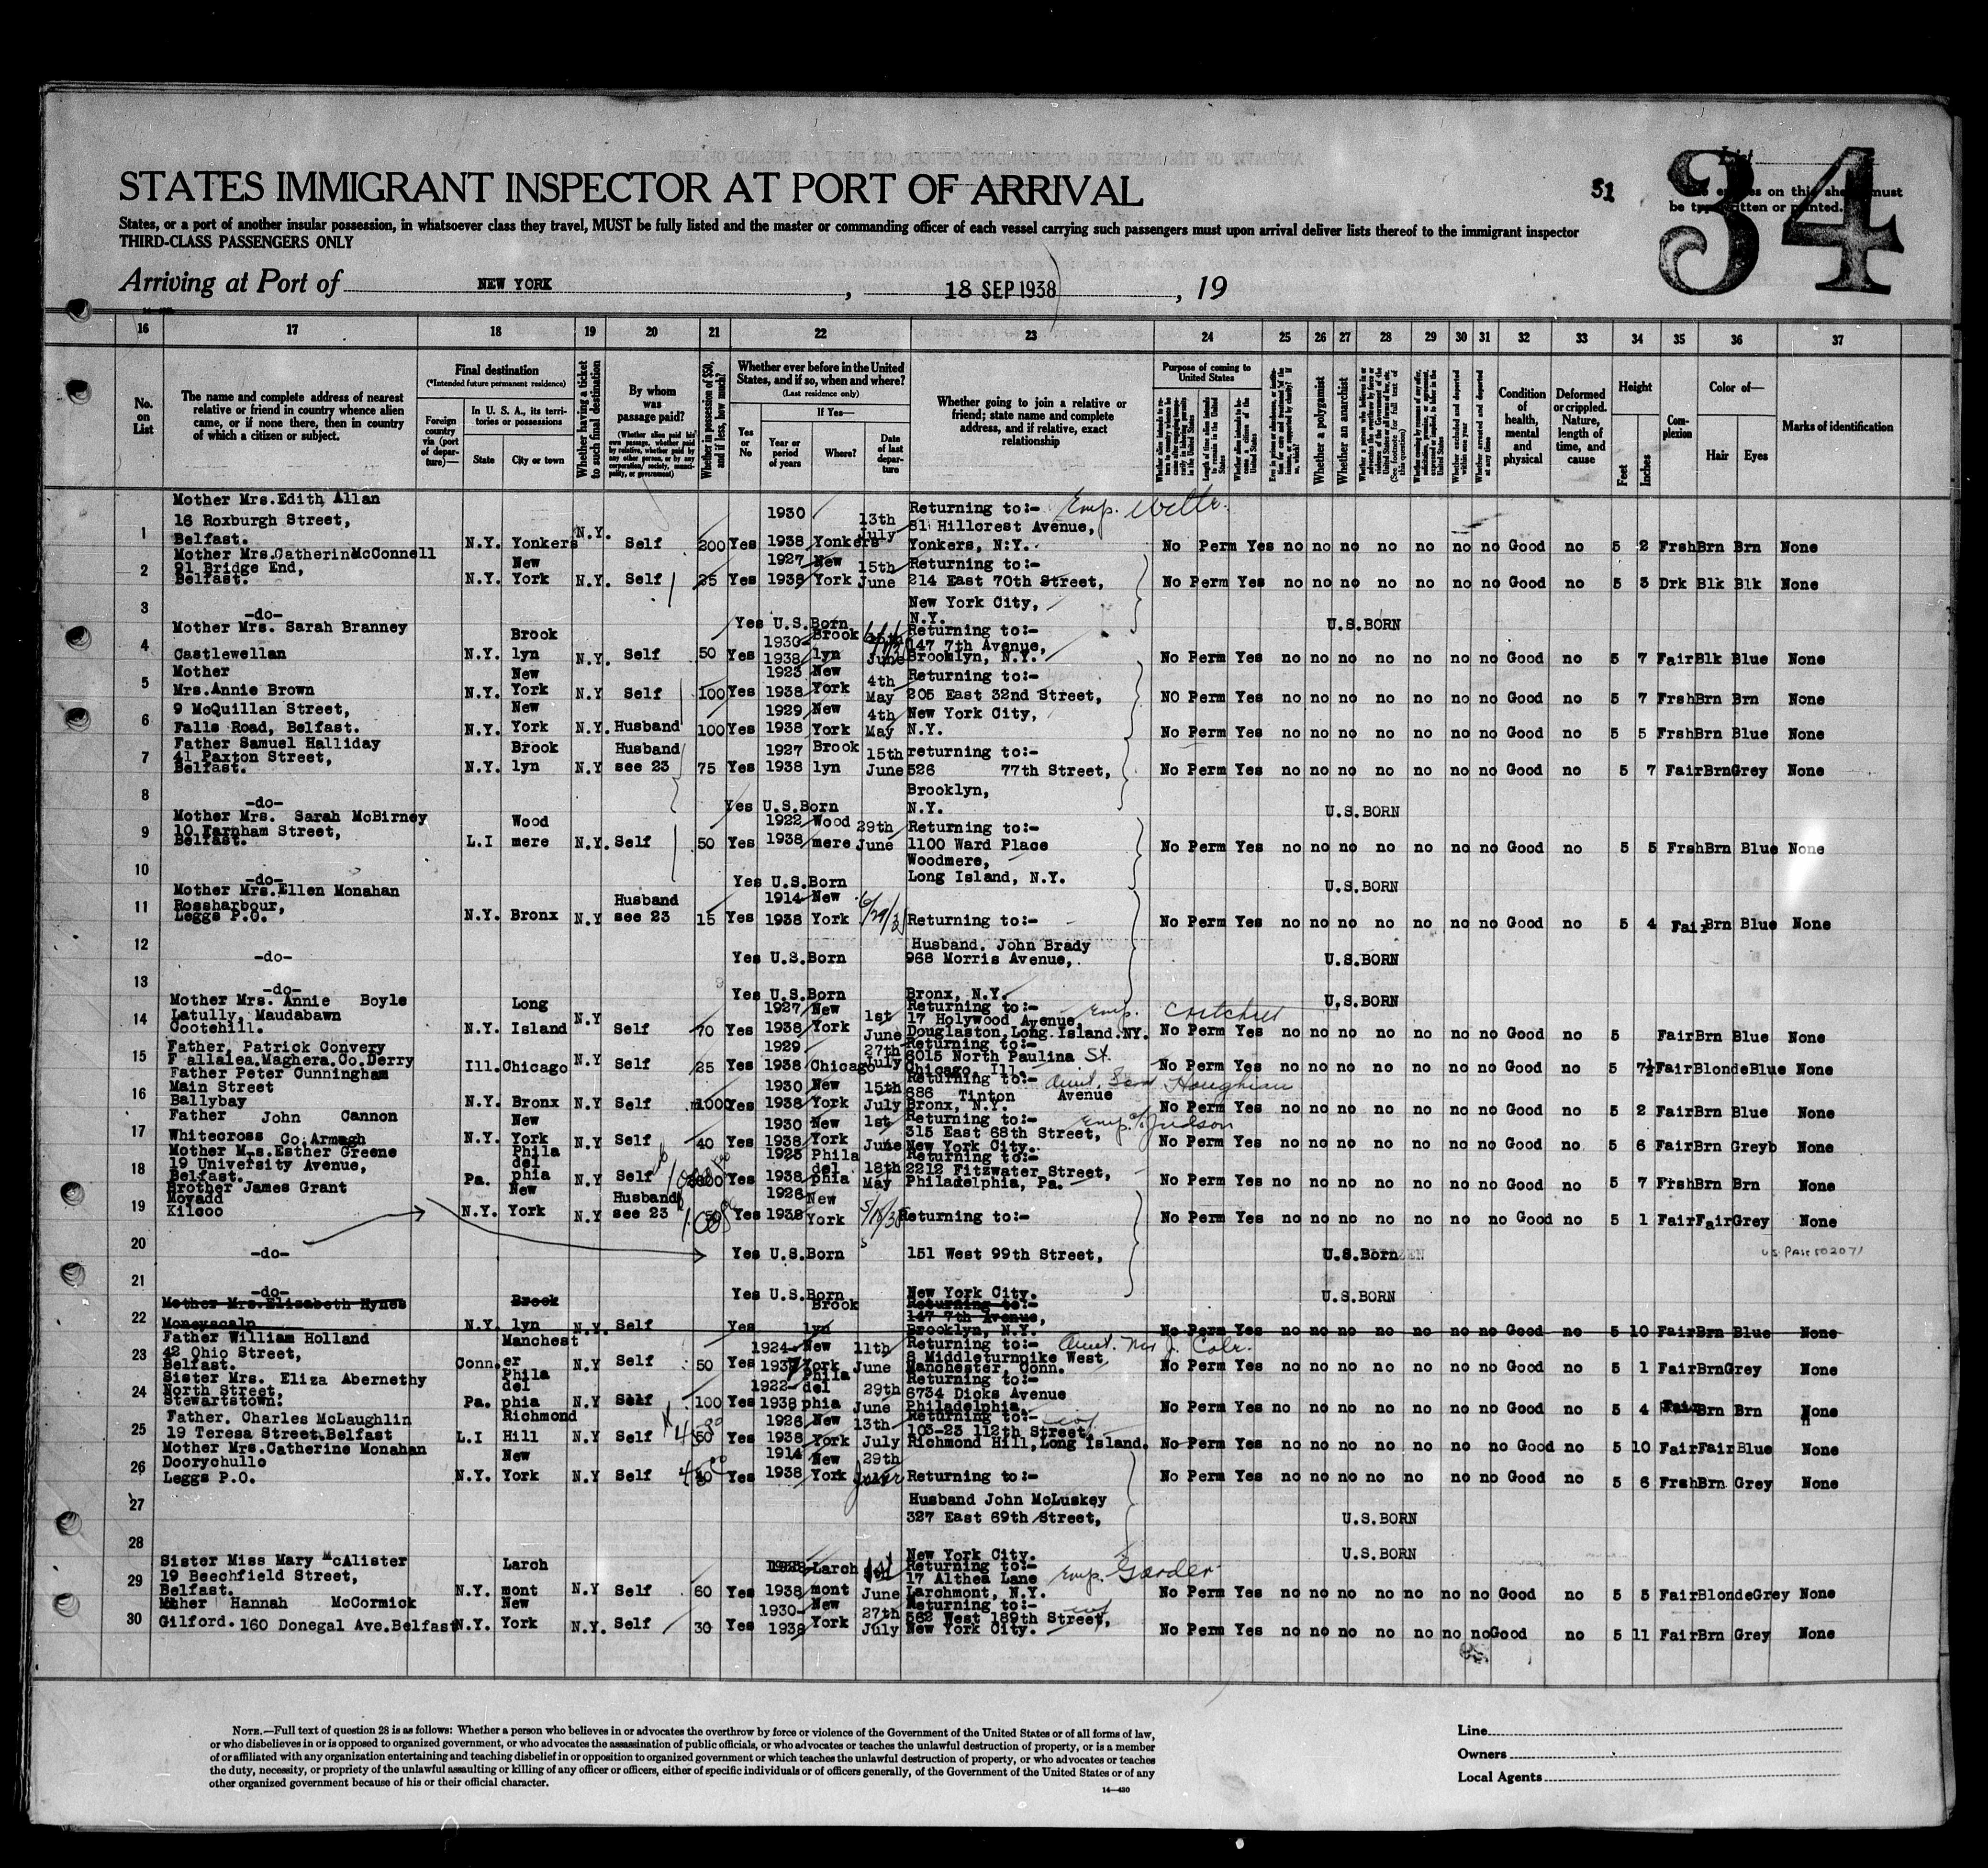 34
STATES IMMIGRANT INSPECTOR AT PORT OF ARRIVAL
51
States, or a port of another insular possession, in whatsoever class they travel, MUST be fully listed and the master or commanding officer of each vessel carrying such passengers must upon arrival deliver lists thereof to the immigrant inspector
THIRD-CLASS PASSENGERS ONLY
Arriving at Port of NEW YORK, 18 SEP 1938, 19
16 17 18 19 20 21 22 23 24 25 26 27 28 29 30 31 32 33 34 35 36 37
No. on List
The name and complete address of nearest relative or friend in country whence alien came, or if none there, then in country of which a citizen or subject.
Final destination
(*Intended future permanent residence)
Foreign country via (port of departure)—
In U. S. A., its territories or possessions
State
City or town
Whether having a ticket to such final destination
By whom was passage paid?
(Whether alien paid his own passage, whether paid by relative, whether paid by any other person, or by any corporation, society, municipality, or government)
Whether in possession of $50, and if less, how much?
Whether ever before in the United States, and if so, when and where?
(Last residence only)
Yes or No
If Yes—
Year or period of years
Where?
Date of last departure
Whether going to join a relative or friend; state name and complete address, and if relative, exact relationship
Purpose of coming to United States
Whether a polygamist
Whether an anarchist
Whether excluded and deported within one year
Whether arrested and deported at any time
Condition of health, mental and physical
Deformed or crippled. Nature, length of time, and cause
Height
Feet
Inches
Complexion
Color of—
Hair
Eyes
Marks of identification
1 Mother Mrs.Edith Allan 16 Roxburgh Street, Belfast. N.Y. Yonkers N.Y. Self 200 Yes 1930 1938 Yonkers 13th July Returning to:- 81 Hillcrest Avenue, Yonkers, N:Y. Emp. No Perm Yes no no no no no no no Good no 5 2 Frsh Brn Brn None
2 Mother Mrs.Catherine McConnell 91 Bridge End, Belfast. N.Y. New York N.Y. Self 25 Yes 1927 1938 New York 15th June Returning to:- 214 East 70th Street, No Perm Yes no no no no no no no Good no 5 3 Drk Blk Blk None
3 -do- Yes U.S.Born New York City, N.Y. U.S.BORN
4 Mother Mrs. Sarah Branney Castlewellan N.Y. Brook lyn N.Y. Self 50 Yes 1930- 1938 Brook lyn June Returning to:- 147 7th Avenue, Brooklyn, N.Y. No Perm Yes no no no no no no no Good no 5 7 Fair Blk Blue None
5 Mother Mrs.Annie Brown N.Y. New York N.Y Self 100 Yes 1923 1938 New York 4th May Returning to:- 205 East 32nd Street, NO Perm Yes no no no no no no no Good no 5 7 Frsh Brn Brn None
6 9 McQuillan Street, Falls Road, Belfast. N.Y. New York N.Y. Husband 100 Yes 1929 1938 New York 4th May New York City, N.Y. No Perm Yes no no no no no no no Good no 5 5 Frsh Brn Blue None
7 Father Samuel Halliday 41 Paxton Street, Belfast. N.Y. Brook lyn N.Y Husband see 23 75 Yes 1927 1938 Brook lyn 15th June returning to:- 526 77th Street, No Perm Yes no no no no no no no Good no 5 7 Fair Brn Grey None
8 -do- Yes U.S.Born Brooklyn, N.Y. U.S.BORN
9 Mother Mrs. Sarah McBirney 10 Farnham Street, Belfast. L.I Wood mere N.Y. Self 50 Yes 1922 1938 Wood mere 29th June Returning to:- 1100 Ward Place No Perm Yes no no no no no no no Good no 5 5 Frsh Brn Blue None
10 -do- Yes U.S.Born Woodmere, Long Island, N.Y. U.S.BORN
11 Mother Mrs.Ellen Monahan Rossharbour, Leggs P.O. N.Y. Bronx N.Y Husband see 23 15 Yes 1914 1938 New York 6/29/38 Returning to:- No Perm Yes no no no no no no no Good no 5 4 Fair Brn Blue None
12 -do- Yes U.S.Born Husband. John Brady 968 Morris Avenue, U.S.BORN
13 -do- Yes U.S.Born Bronx, N.Y. U.S.BORN
14 Mother Mrs. Annie Boyle Latully, Maudabawn Cootehill. N.Y. Long Island N.Y Self 70 Yes 1927 1938 New York 1st June Returning to:- 17 Holywood Avenue, Douglaston,Long Island.NY. Emp. No Perm Yes no no no no no no no Good no 5 Fair Brn Blue None
15 Father. Patrick Convery Fallalea,Maghera,Co.Derry Ill. Chicago N.Y Self 25 Yes 1929 1938 Chicago 27th July Returning to:- 6015 North Paulina St. Chicago, Ill. No Perm Yes no no no no no no no Good no 5 7½ Fair Blonde Blue None
16 Father Peter Cunningham Main Street Ballybay N.Y. Bronx N.Y Self 100 Yes 1930 1938 New York 15th July Returning to:- 686 Tinton Avenue Bronx, N.Y. Aunt. No Perm Yes no no no no no no no Good no 5 2 Fair Brn Blue None
17 Father John Cannon Whitecross Co.Armagh N.Y. New York N.Y Self 40 Yes 1930 1938 New York 1st June Returning to:- 315 East 68th Street, New York City. Emp. of Judson No Perm Yes no no no no no no no Good no 5 6 Fair Brn Greyb None
18 Mother Mrs.Esther Greene 19 University Avenue, Belfast. Pa. Phila del phia N.Y Self Yes 1923 1938 Phila del phia 18th May Returning to:- 2212 Fitzwater Street, Philadelphia, Pa. No Perm Yes no no no no no no no Good no 5 7 Frsh Brn Brn None
19 Brother James Grant Moyadd Kilcoo N.Y. New York N.Y Husband see 23 50 Yes 1926 1938 New York 5/18/38 Returning to:- No Perm Yes no no no no no no no Good no 5 1 Fair Fair Grey None
20 -do- Yes U.S.Born 151 West 99th Street, U.S.Born
21 -do- Yes U.S.Born New York City. U.S.BORN
22 Mother Mrs.Elizabeth Hynes Moneyscalp N.Y. Brook lyn N.Y. Self Yes Brook lyn Returning to:- 147 7th Avenue, Brooklyn, N.Y. No Perm Yes no no no no no no no Good no 5 10 Fair Brn Blue None
23 Father William Holland 42 Ohio Street, Belfast. Conn. Manchest er N.Y Self 50 Yes 1924 1938 New York 11th June Returning to:- 8 Middleturnpike West Manchester, Conn. Aunt. No Perm Yes no no no no no no no Good no 5 1 Fair Brn Grey None
24 Sister Mrs. Eliza Abernethy North Street, Stewartstown. Pa. Phila del phia N.Y Self 100 Yes 1922- 1938 Phila del phia 29th June Returning to:- 6734 Dicks Avenue Philadelphia. No Perm Yes no no no no no no no Good no 5 4 Fair Brn Brn None
25 Father. Charles McLaughlin 19 Teresa Street,Belfast L.I Richmond Hill N.Y Self 50 Yes 1926 1938 New York 13th July Returning to:- 103-23 112th Street, Richmond Hill,Long Island. No Perm Yes no no no no no no no Good no 5 10 Fair Fair Blue None
26 Mother Mrs.Catherine Monahan Doorychullo Leggs P.O. N.Y. New York N.Y Self Yes 1914 1938 New York 29th Returning to:- No Perm Yes no no no no no no no Good no 5 6 Frsh Brn Grey None
27 Husband John McLuskey 327 East 69th Street, U.S.BORN
28 New York City. U.S.BORN
29 Sister Miss Mary McAlister 19 Beechfield Street, Belfast. N.Y. Larch mont N.Y Self 60 Yes 1938 Larch mont 1st June Returning to:- 17 Althea Lane Larchmont, N.Y. Emp. Garder No Perm Yes no no no no no no no Good no 5 5 Fair Blonde Grey None
30 Hannah McCormick Gilford. 160 Donegal Ave.Belfast N.Y. New York N.Y. Self 30 Yes 1930- 1938 New York 27th July Returning to:- 562 West 189th Street, New York City. No Perm Yes no no no no no no no Good no 5 11 Fair Brn Grey None
NOTE.—Full text of question 28 is as follows: Whether a person who believes in or advocates the overthrow by force or violence of the Government of the United States or of all forms of law,
or who disbelieves in or is opposed to organized government, or who advocates the assassination of public officials, or who advocates or teaches the unlawful destruction of property, or is a member
of or affiliated with any organization entertaining and teaching disbelief in or opposition to organized government or which teaches the unlawful destruction of property, or who advocates or teaches
the duty, necessity, or propriety of the unlawful assaulting or killing of any officer or officers, either of specific individuals or of officers generally, of the Government of the United States or of any
other organized government because of his or their official character.
14—430
Line
Owners
Local Agents